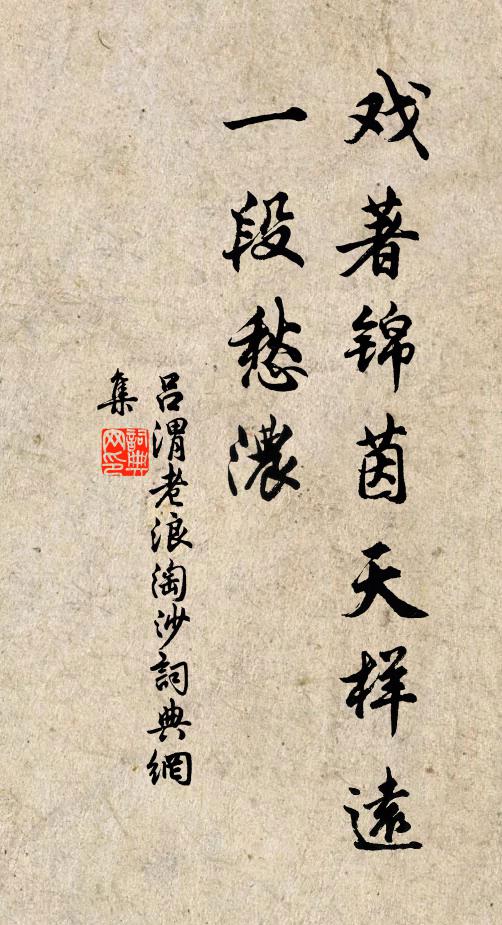 戏著锦茵天样遠
一段愁濃
吕渭老浪淘沙詞典網
集
詞典网印